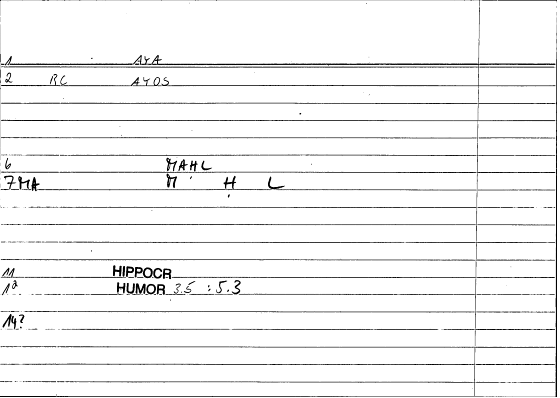 1 AYA
2 RC AYOS
6 MAHL
7MA M H L
11 HIPPOCR
12 HUMOR 3.5 : 5.3
14?